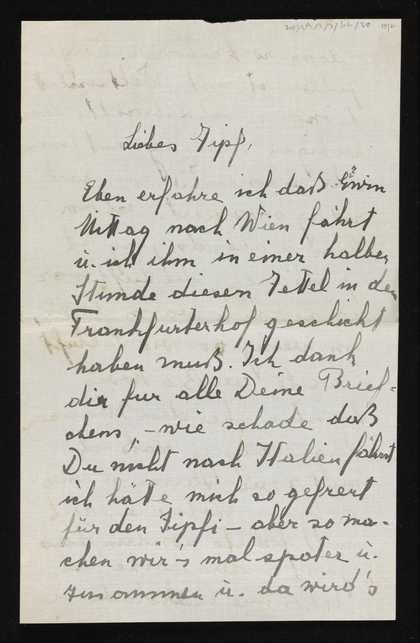 Liebes Zipf,
Eben erfahre ich daß Erwin
Mittag nach Wien fährt
u. ich ihm in einer halben
Stunde diesen Zettel in den
Frankfurterhof geschickt
haben muß. Ich dank
dir fur alle Deine Brief-
chens, – wie schade daß
Du nicht nach Italien fährst
ich hätte mich so gefreut
für den Zipfi – aber so ma-
chen wir's mal später u.
zusammen u. da wird's